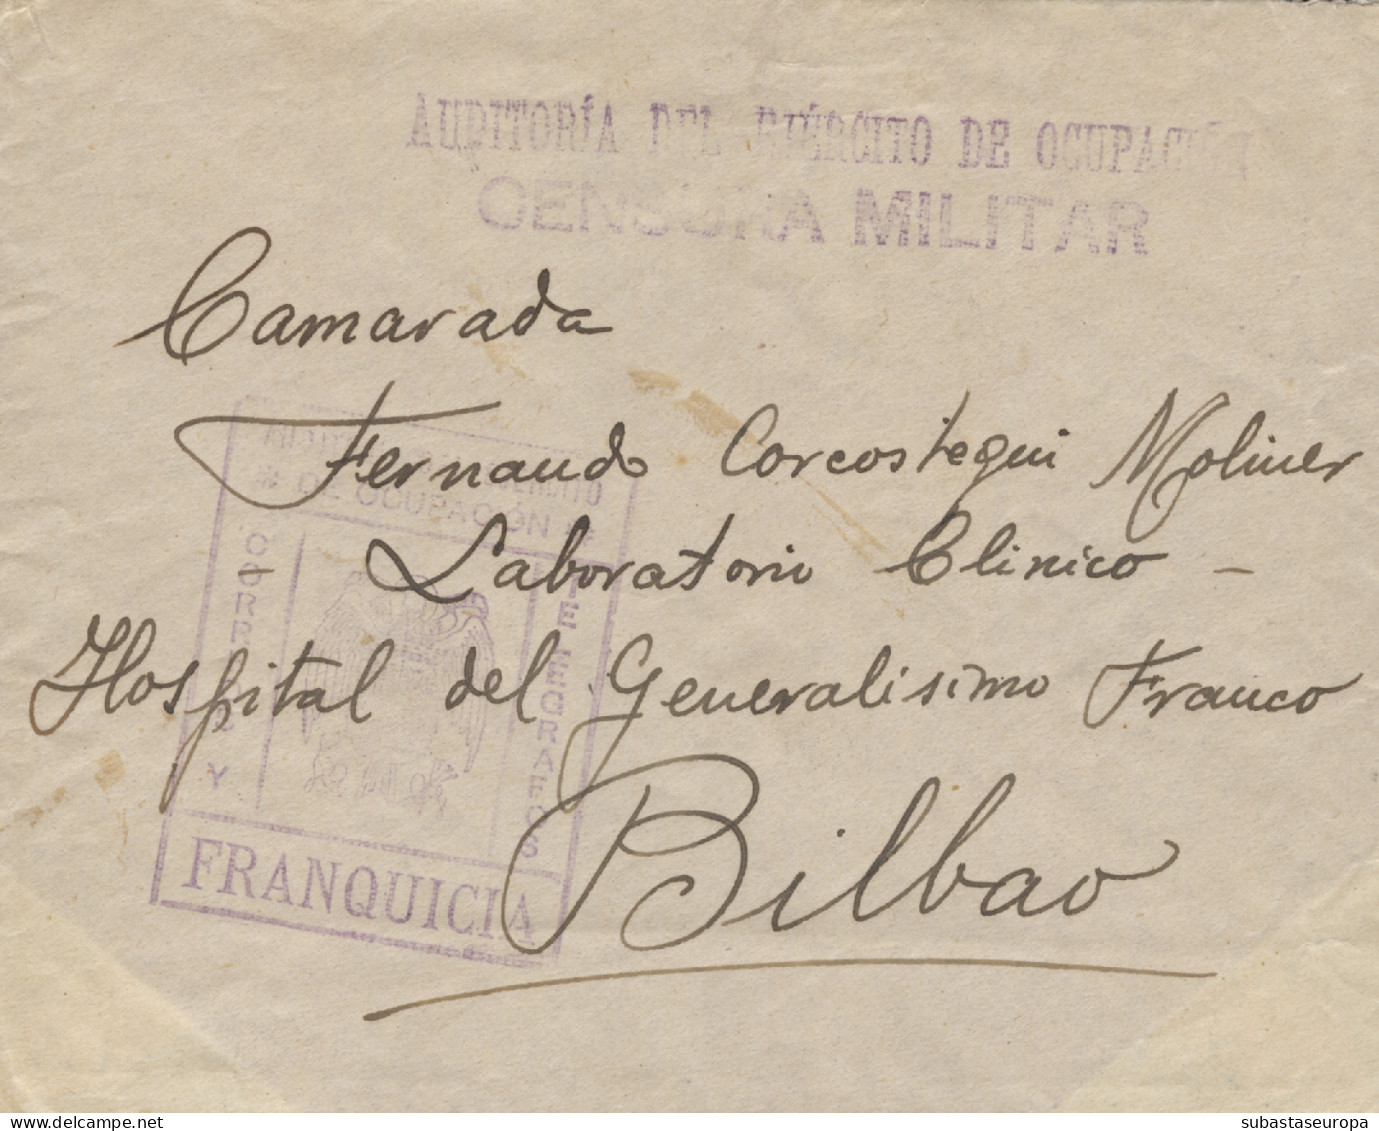 AUDITORÍA DEL EJÉRCITO DE OCUPACIÓN
CENSURA MILITAR
Camarada
Fernando Corcostegui Moliner
Laboratorio Clinico -
Hospital del Generalisimo Franco
Bilbao
EJÉRCITO
DE OCUPACIÓN
CORREOS Y
TELEGRAFOS
FRANQUICIA
subastaseuropa